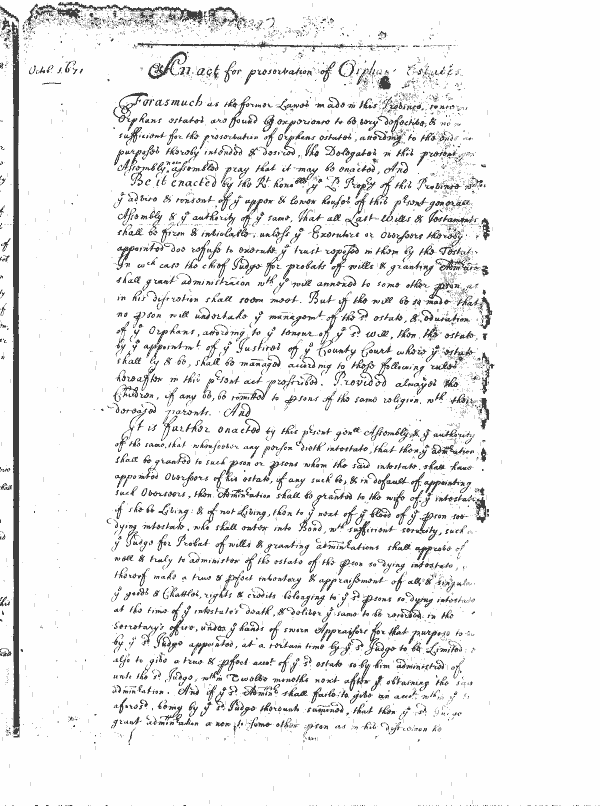 Octob. 1671
An act for preservation of Orphans Estates
Forasmuch as the former Lawes made in this Province, concer
Orphans estates are found by experience to be very defective, & no
sufficient for the preservation of Orphans estates, according to the end
purposes thereby intended & desired, the Delegates in this present
Assembly now assembled pray that it may be enacted, And
Be it enacted by the Rt honoble ye Ld Propry of this Province
ye advice & consent of ye upper & lower houses of this psent generall
Assembly & ye authority of ye same, That all Last Wills & Testaments
shall be firm & inviolable, unless ye Executrs or Overseers thereby
appointed doe refuse to execute ye trust reposed in them by the Testat
In wch case the chief Judge for probate off wills & granting Administ
shall grant administracion wth ye will annexed to some other pson as
in his discretion shall seem meet. But if the will be so made that
no pson will undertake ye managemt of the sd estate, & education
of ye Orphans, according to ye tenour of ye sd. will, then the estate
by ye appointmt of ye Justices of ye County Court where ye estate
shall ly & be, shall be managed according to those following rules
hereafter in this psent act prescribed. Provided alwayes the
Children, if any be, be comitted to psons of the same religion, wth their
deceased parents. And
It is further enacted by this psent genll Assembly & ye authority
off the same, that whensoever any person dieth intestate, that then ye admination
shall be granted to such pson or psons whom the said intestate shall have
appointed Overseers of his estate, if any such be, & in default of appointing
such Overseers, then Admination shall be granted to the wife of ye intestate
if she be Living: & if not Living, then to ye next of ye blood of ye pson soe
dying intestate, who shall enter into Bond, wth sufficient security, such a
ye Judge for Probat of wills & granting adminations shall approve of
well & truly to administer of the estate of the pson so dying intestate,
thereof make a true & pfect inventory & appraisement of all & singular
ye goods & Chattles, rights & credits belonging to ye sd psons so dying intestate
at the time of ye intestate's death, & deliver ye same to be recorded in the
Secretary's office, under ye hands of sworn Appraisers for that purpose to
by ye sd Judge appointed, at a certain time by ye sd Judge to be Limited
also to give a true & pfect acct of ye sd estate so by him administred of
unto the sd Judge, wthin Twelve moneths next after ye obtaining the said
admination. And if ye sd Adminr shall faile to give an acct. wthin ye
aforesd, being by ye sd Judge thereunto sumoned, that then ye sd Judge
grant admination a new to some other pson as in his discretion he